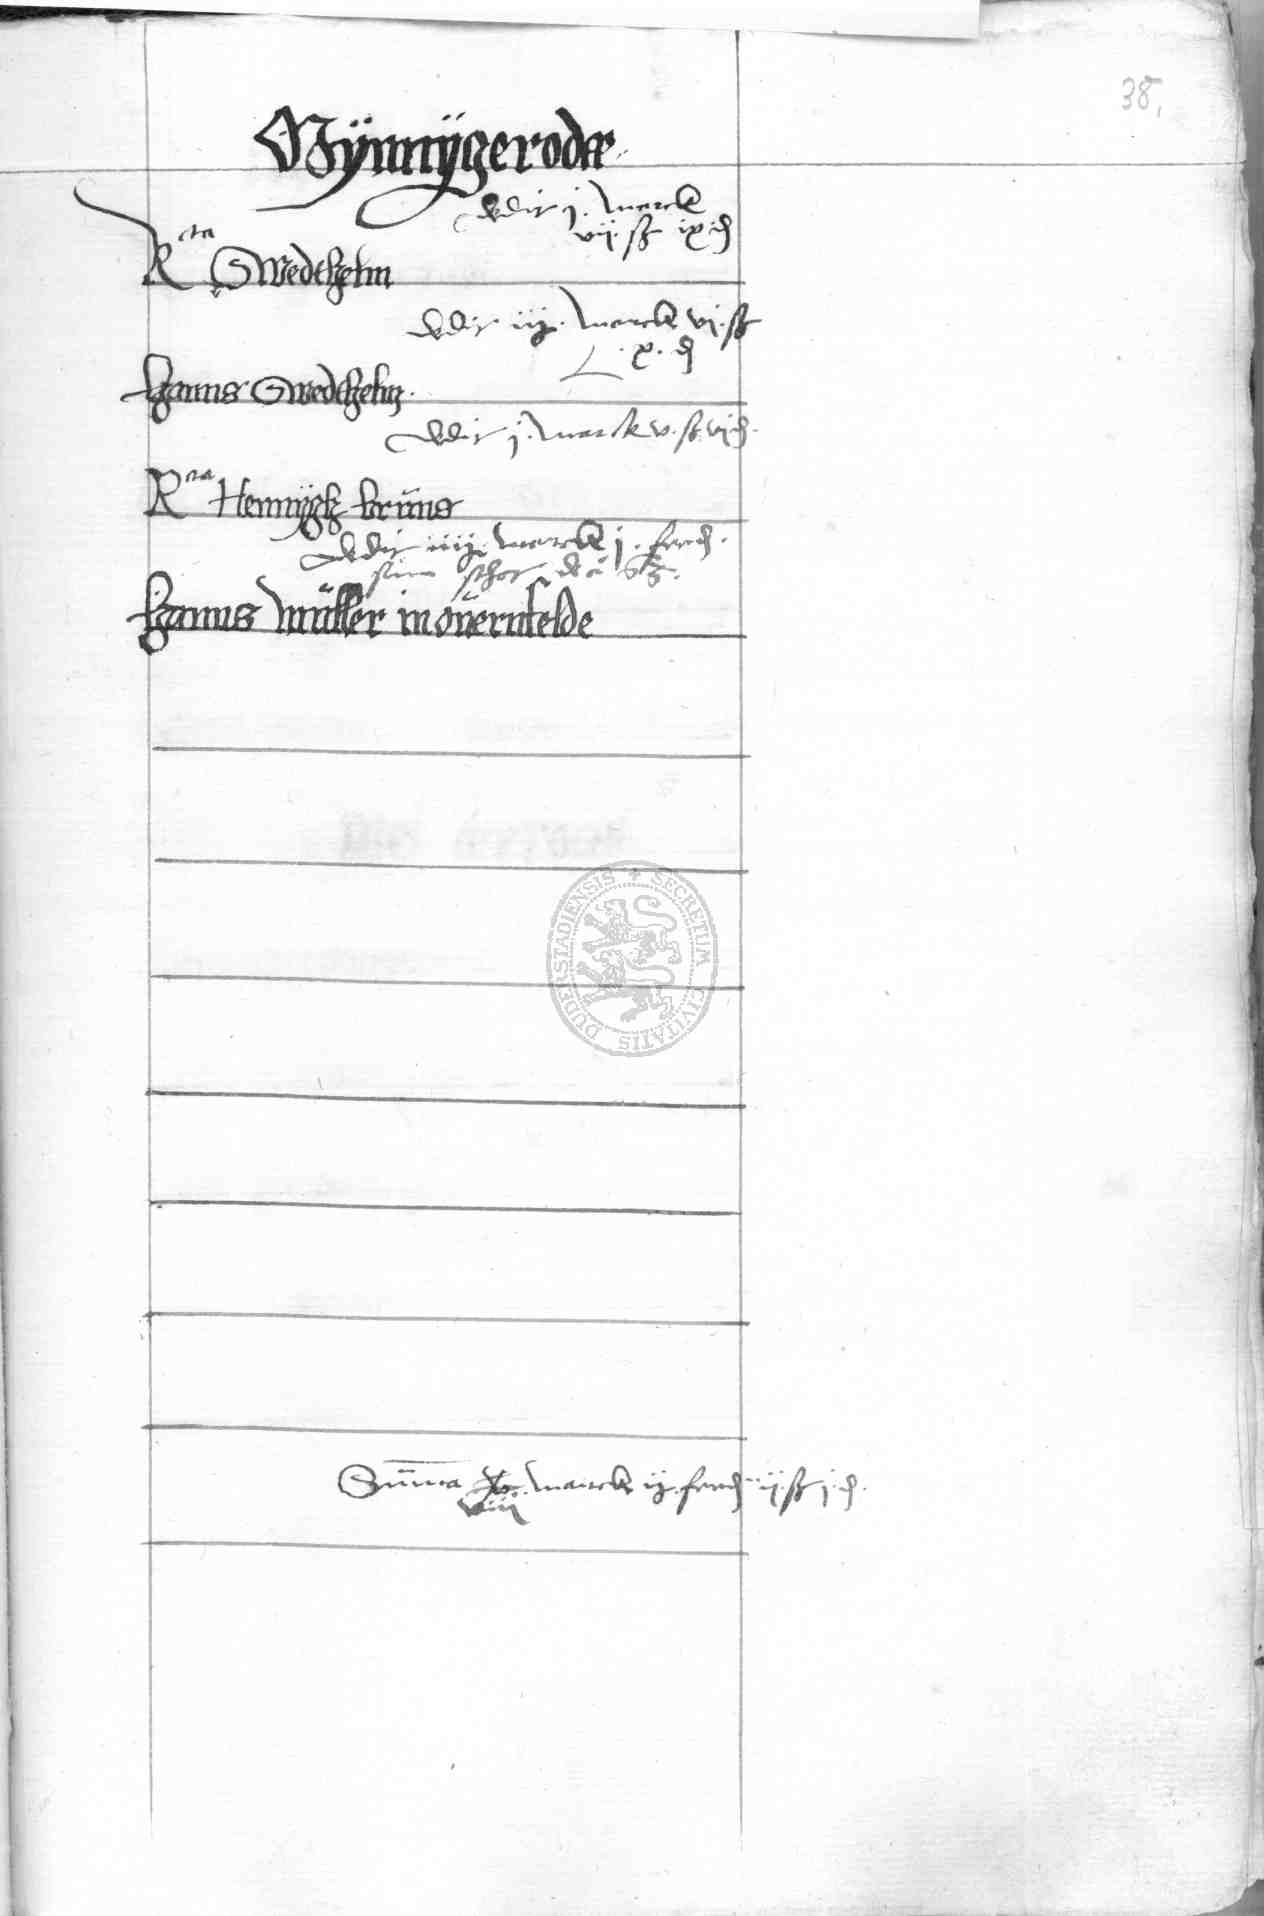 38.
Mÿnnÿgerode
dedit j. marck
vij. ß ix ₰
Rta Swedthelm
dedit iij. marck vj. ß
x. ₰
Hanns Swedthelm
dedit j. marck v. ß vij ₰.
Rta Hennÿgk brüns
dedit iiij. marck j. ferd.
Hanns müller in övernfelde
DUDERSTADIENSIS SECRETUM CIVITATIS
Summa marck ij. ferd ij. ß j. ₰.
viij